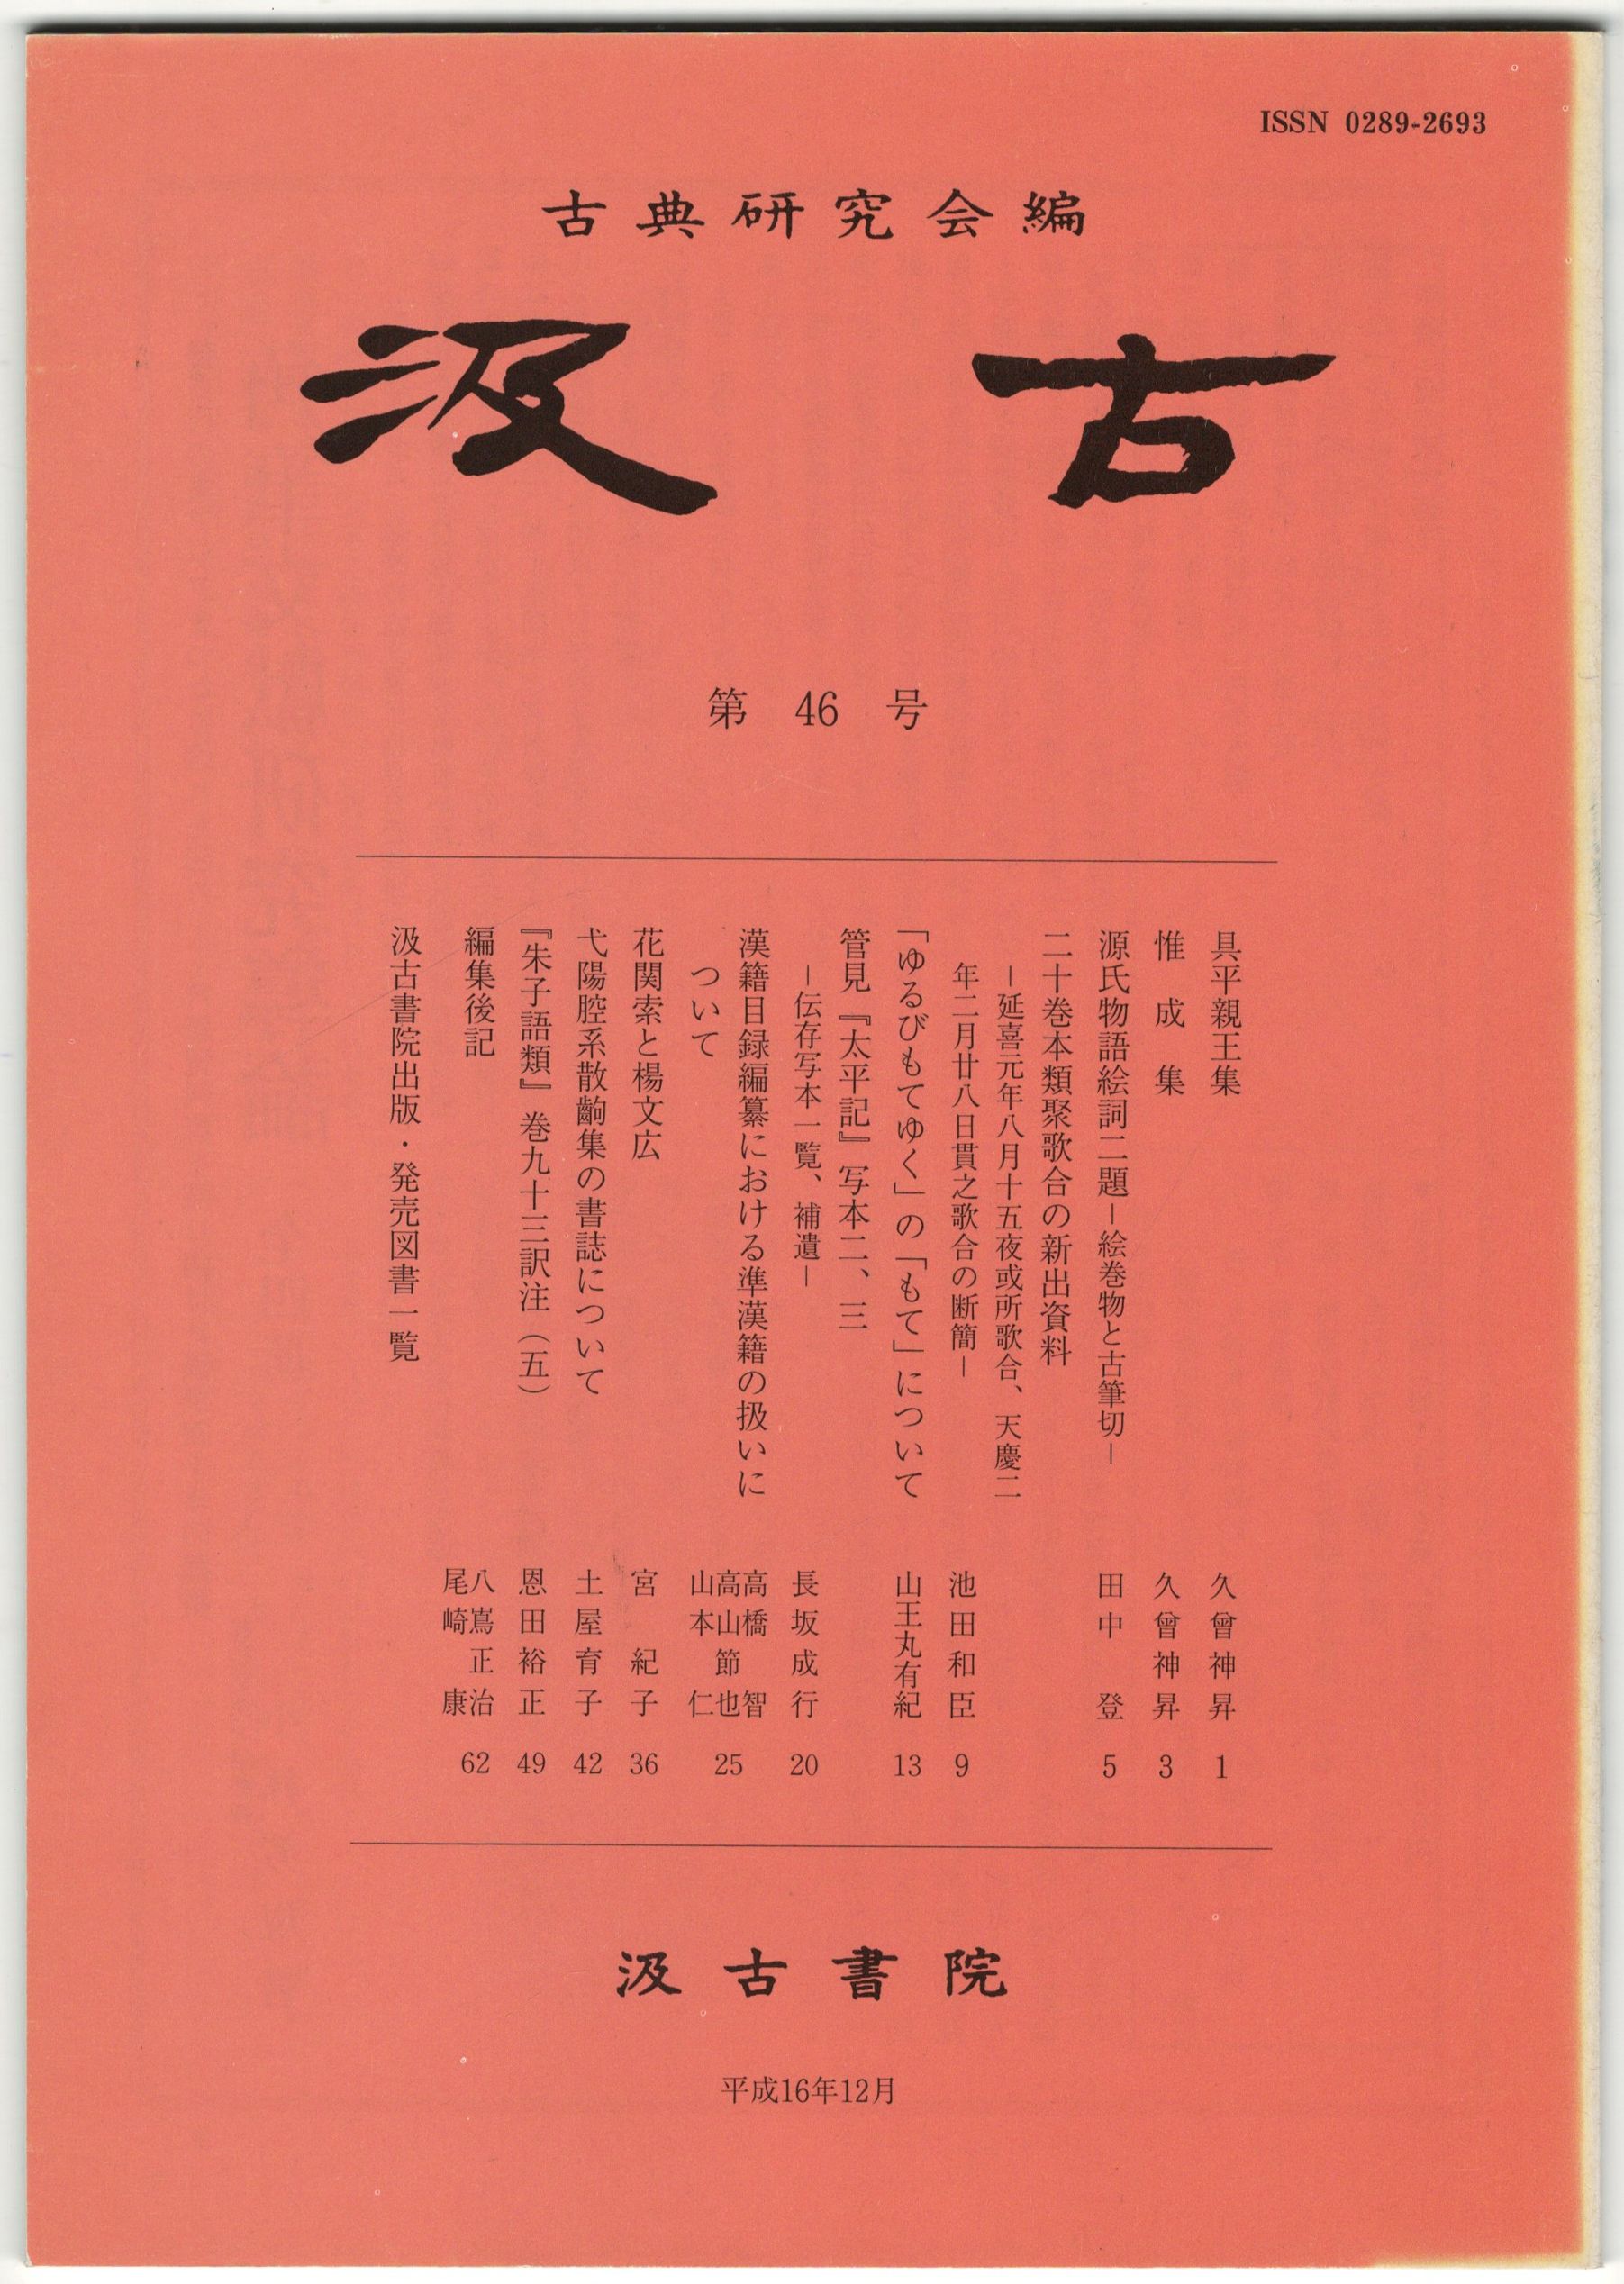 ISSN 0289-2693
古典研究会編
汲古
第 46 号
具平親王集 久曾神昇 1
惟成集 久曾神昇 3
源氏物語絵詞二題―絵巻物と古筆切― 田中登 5
二十巻本類聚歌合の新出資料
―延喜元年八月十五夜或所歌合、天慶二
年二月廿八日貫之歌合の断簡― 池田和臣 9
「ゆるびもてゆく」の「もて」について 山王丸有紀 13
管見『太平記』写本二、三
―伝存写本一覧、補遺― 長坂成行 20
漢籍目録編纂における準漢籍の扱いに
ついて 高橋智 高山節也 山本仁 25
花関索と楊文広 宮紀子 36
弋陽腔系散齣集の書誌について 土屋育子 42
『朱子語類』巻九十三訳注（五） 恩田裕正 49
編集後記 八嶌正治 尾崎康 62
汲古書院出版・発売図書一覧
汲古書院
平成16年12月